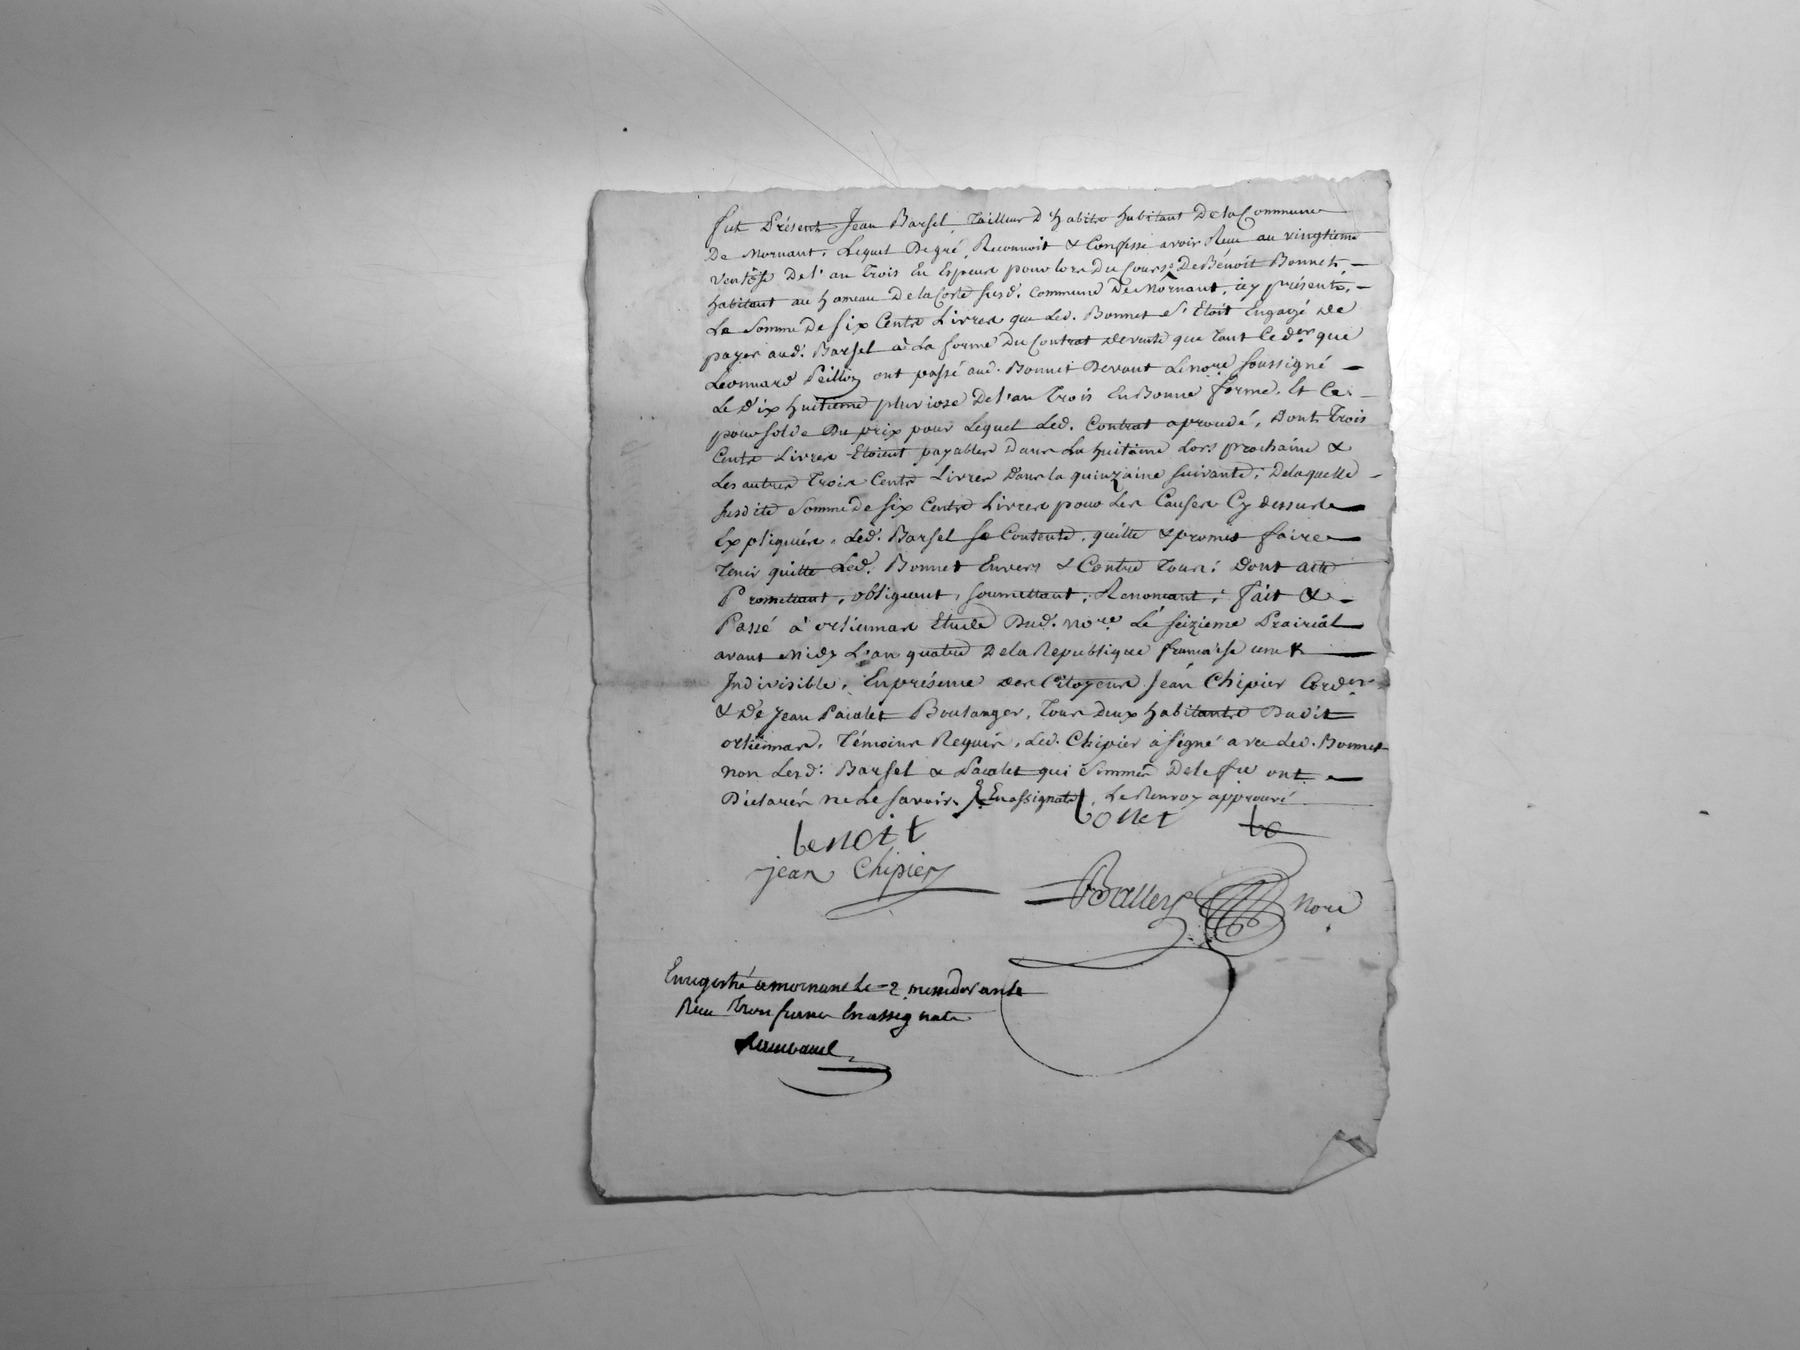 fut Présent Jean Barsel, Tailleur D'habits habitant De la Commune
De Mornant, Lequel De gré, Reconnoit & Confesse avoir Reçu au vingtieme
Ventôse De l'an Trois En Especes pour lors Du Cours, De Bénoit Bonnet,
habitant au hameau De la Coste susd. Commune De Mornant, icy présent,
La Somme De Six Cents Livres que Led. Bonnet s'Etoit Engagé De
payer aud. Barsel à La forme Du Contrat de vente que tant Ce der. que
Léonnard Peillon ont passé aud. Bonnet Devant Le nore. soussigné
Le Dix huitieme pluviose De l'an Trois En Bonne forme. Et Ce
pour solde Du prix pour Lequel Led. Contrat a procédé, Dont Trois
Cents Livres Etoient payables Dans La huitaine Lors prochaine &
Les autres Trois Cents Livres Dans la quinzaine suivante; De laquelle
susdite Somme De Six Cents Livres pour Les Causes Cy dessus
Expliquées, Led. Barsel se Contente, quitte & promet faire
Tenir quitte Led. Bonnet Envers & Contre Tous; Dont acte
Promettant, obligeant, soumettant, Renonçant; fait &
Passé à orlienas Etude Dud. nore. Le seizieme Prairial
avant Midy L'an quatre De la Republique française une &
Indivisible, En présence des Citoyens Jean Chipier Corder
& De Jean Paialet Boulanger, Tous Deux habitants Dudit
orliénas, Témoins Requis, Led. Chipier a signé avec Led. Bonnet
non Lesd. Barsel & Paialet qui Sommés De le fre ont
Déclarés ne Le savoir. En assignats, Le Renvoy approuvé
benoit bonet bo
jean Chipier
Balley Nore
Enregistré a mornant le 2 messidor an 4e
Reçu Trois francs En assignats